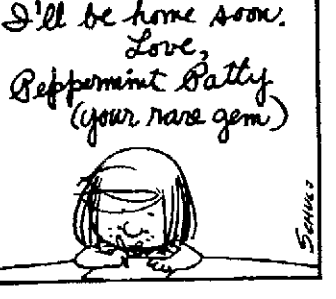 I'll be home soon.
Love,
Peppermint Patty
(your rare gem)
SCHULZ